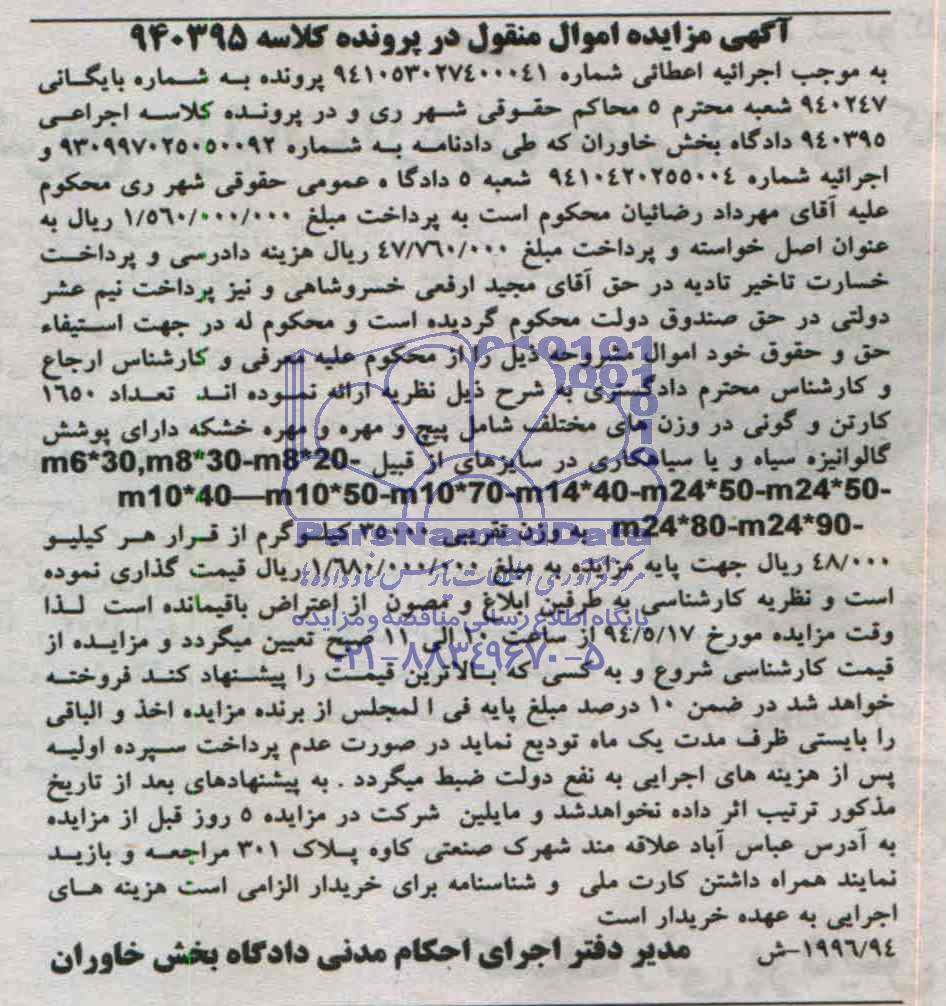 آگهی مزایده اموال منقول در پرونده کلاسه ۹۴۰۳۹۵
به موجب اجرائیه اعطائی شماره ۹۴۱۰۵۳۰۲۷۴۰۰۰۴۱ پرونده به شماره بایگانی
۹۴۰۲۴۷ شعبه محترم ۵ محاکم حقوقی شهر ری و در پرونده کلاسه اجراعی
۹۴۰۳۹۵ دادگاه بخش خاوران که طی دادنامه به شماره ۹۳۰۹۹۷۰۲۵۰۵۰۰۹۲ و
اجرائیه شماره ۹۴۱۰۴۲۰۲۵۵۰۰۴ شعبه ۵ دادگا ه عمومی حقوقی شهر ری محکوم
علیه آقای مهرداد رضائیان محکوم است به پرداخت مبلغ ۱/۵۶۰/۰۰۰/۰۰۰ ریال به
عنوان اصل خواسته و پرداخت مبلغ ۴۷/۷۶۰/۰۰۰ ریال هزینه دادرسی و پرداخت
خسارت تاخیر تادیه در حق آقای مجید ارفعی خسروشاهی و نیز پرداخت نیم عشر
دولتی در حق صندوق دولت محکوم گردیده است و محکوم له در جهت استیفاء
حق و حقوق خود اموال مشروحه ذیل را از محکوم علیه معرفی و کارشناس ارجاع
و کارشناس محترم دادگستری به شرح ذیل نظریه ارائه نموده اند تعداد ۱۶۵۰
کارتن و گونی در وزن های مختلف شامل پیچ و مهره و مهره خشکه دارای پوشش
گالوانیزه سیاه و یا سیاهکاری در سایزهای از قبیل m6*30,m8*30-m8*20-
m10*40—m10*50-m10*70-m14*40-m24*50-m24*50-
m24*80-m24*90- به وزن تقریبی ۳۵۰۰۰ کیلوگرم از قرار هر کیلیو
۴۸/۰۰۰ ریال جهت پایه مزایده به مبلغ ۱/۶۸۰/۰۰۰/۰۰۰ ریال قیمت گذاری نموده
است و نظریه کارشناسی به طرفین ابلاغ و مصون از اعتراض باقیمانده است لذا
وقت مزایده مورخ ۹۴/۵/۱۷ از ساعت ۱۰ الی ۱۱ صبح تعیین میگردد و مزایده از
قیمت کارشناسی شروع و به کسی که بالاترین قیمت را پیشنهاد کند فروخته
خواهد شد در ضمن ۱۰ درصد مبلغ پایه فی ا لمجلس از برنده مزایده اخذ و الباقی
را بایستی ظرف مدت یک ماه تودیع نماید در صورت عدم پرداخت سپرده اولیه
پس از هزینه های اجرایی به نفع دولت ضبط میگردد . به پیشنهادهای بعد از تاریخ
مذکور ترتیب اثر داده نخواهدشد و مایلین شرکت در مزایده ۵ روز قبل از مزایده
به آدرس عباس آباد علاقه مند شهرک صنعتی کاوه پلاک ۳۰۱ مراجعه و بازید
نمایند همراه داشتن کارت ملی و شناسنامه برای خریدار الزامی است هزینه های
اجرایی به عهده خریدار است
۱۹۹۶/۹۴-ش مدیر دفتر اجرای احکام مدنی دادگاه بخش خاوران
ParsNamadData
مرکز فرآوری اطلاعات پارس نماد داده ها
پایگاه اطلاع رسانی مناقصه و مزایده
۰۲۱-۸۸۳۴۹۶۷۰-۵